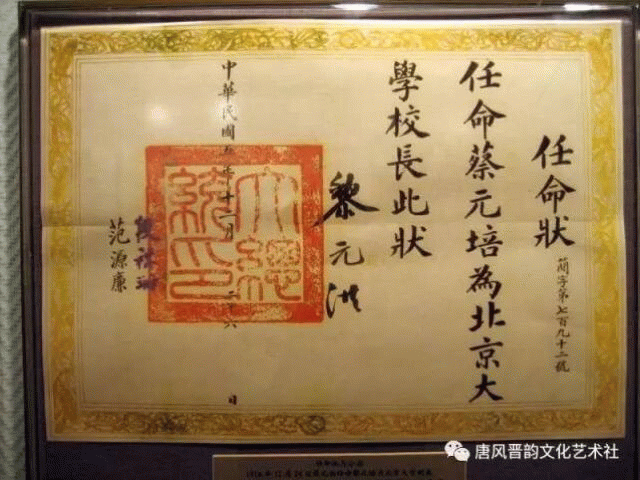 任命狀
簡字第七百九十二號
任命蔡元培為北京大
學校長此狀
黎元洪
大總
統印
中華民國五年十二月二十六日
段祺瑞
范源廉
唐风晋韵文化艺术社